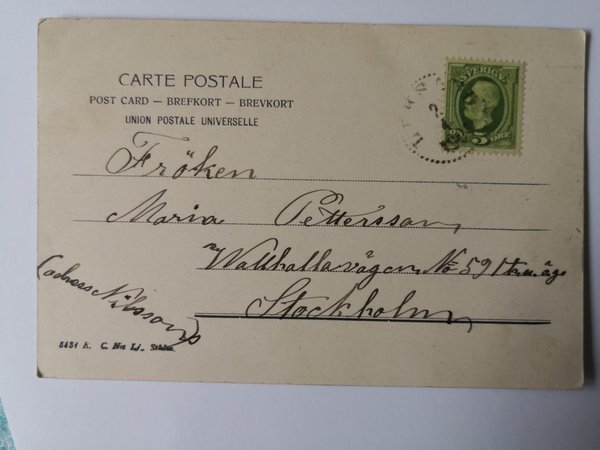 CARTE POSTALE
POST CARD — BREFKORT — BREVKORT
UNION POSTALE UNIVERSELLE
SVERIGE
5 ÖRE
Fröken
Maria Pettersson,
Wallhallavägen No 59
Stockholm
(adress Nilssons)
5451 E. C.